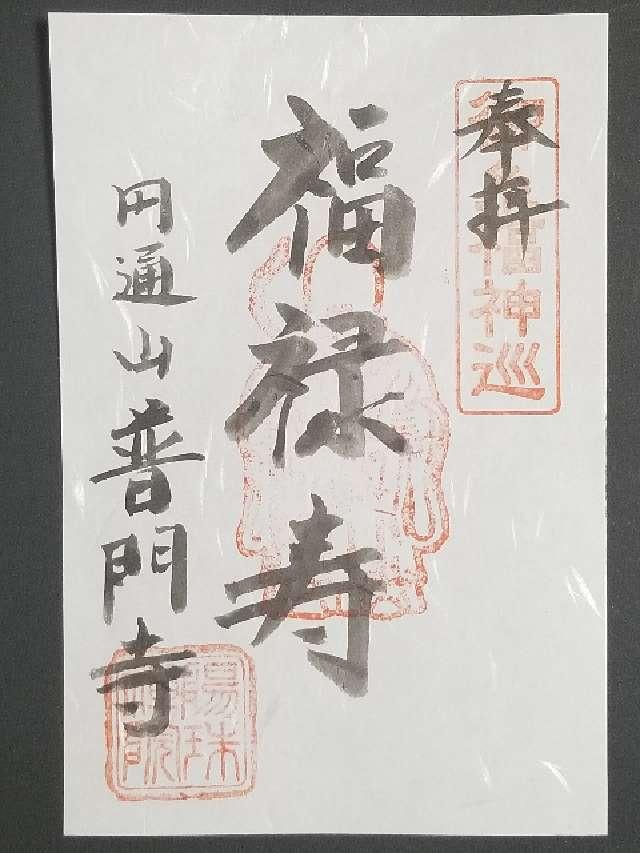 奉拝
福神巡
福禄寿
円通山普門寺